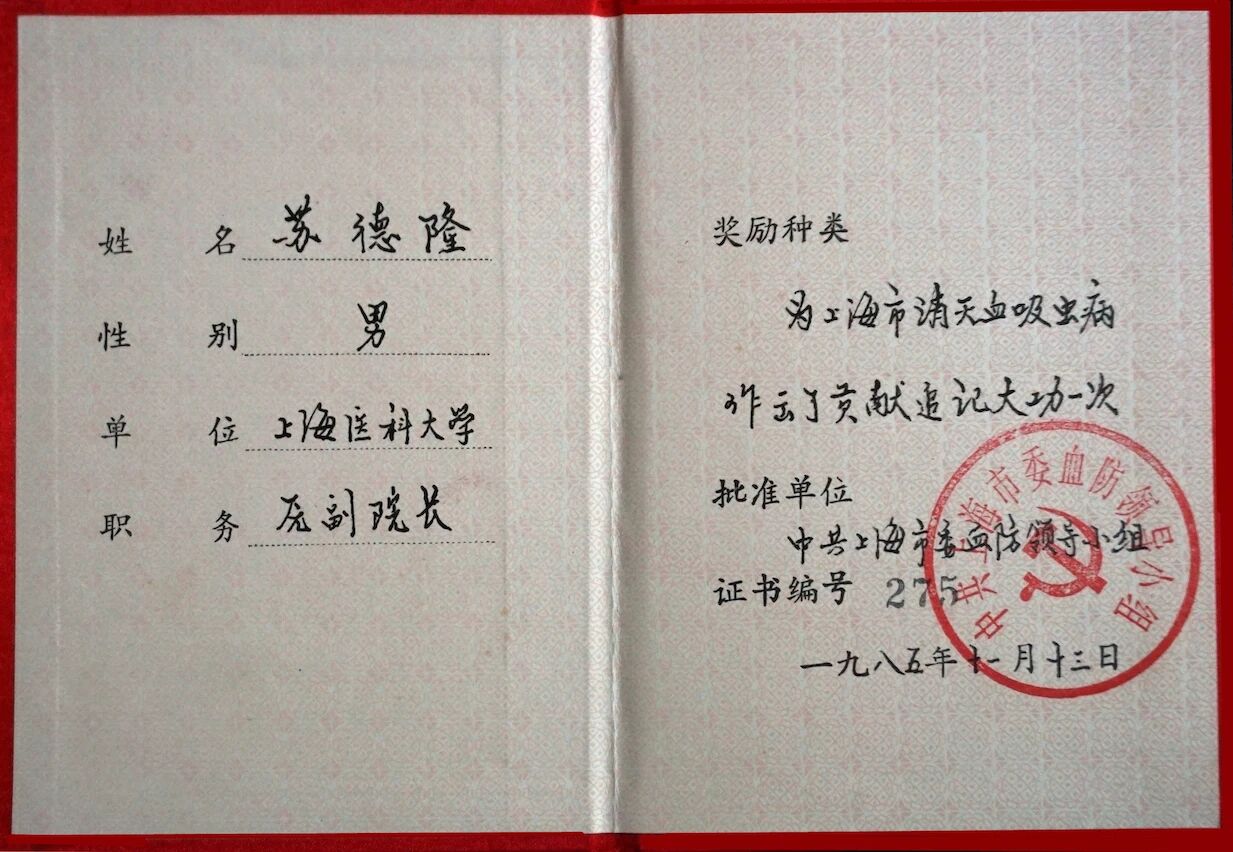 姓 名 苏德隆
性 别 男
单 位 上海医科大学
职 务 原副院长
奖励种类
为上海市消灭血吸虫病
作出了贡献追记大功一次
批准单位
中共上海市委血防领导小组
证书编号 275
一九八五年十一月十三日
中共上海市委血防领导小组